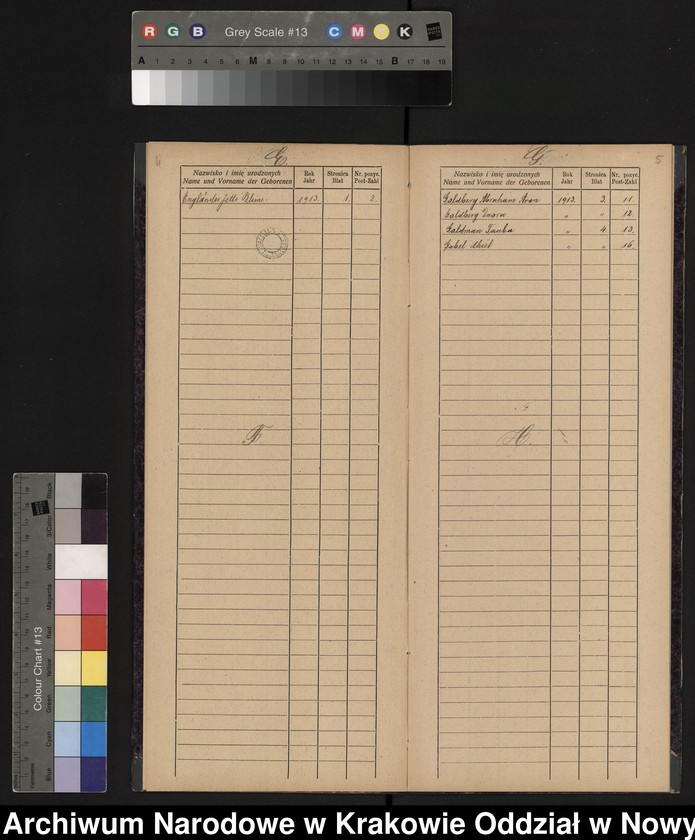 R G B Grey Scale #13 C M Y K
A 1 2 3 4 5 6 M 8 9 10 11 12 13 14 15 B 17 18 19
E.
Nazwisko i imię urodzonych Rok Stronica Nr. pozyc.
Name und Vorname der Geborenen Jahr Blat Post-Zahl
Engländer 1913. 1. 2.
F
G. 5
Nazwisko i imię urodzonych Rok Stronica Nr. pozyc.
Name und Vorname der Geborenen Jahr Blat Post-Zahl
Goldberg Abraham Aron 1913. 3. 11.
Goldberg " " 12.
Goldman Tauba " 4. 13.
" " 16.
H.
Colour Chart #13
Blue Cyan Green Yellow Red Magenta White 3/Color Black
Archiwum Narodowe w Krakowie Oddział w Nowy